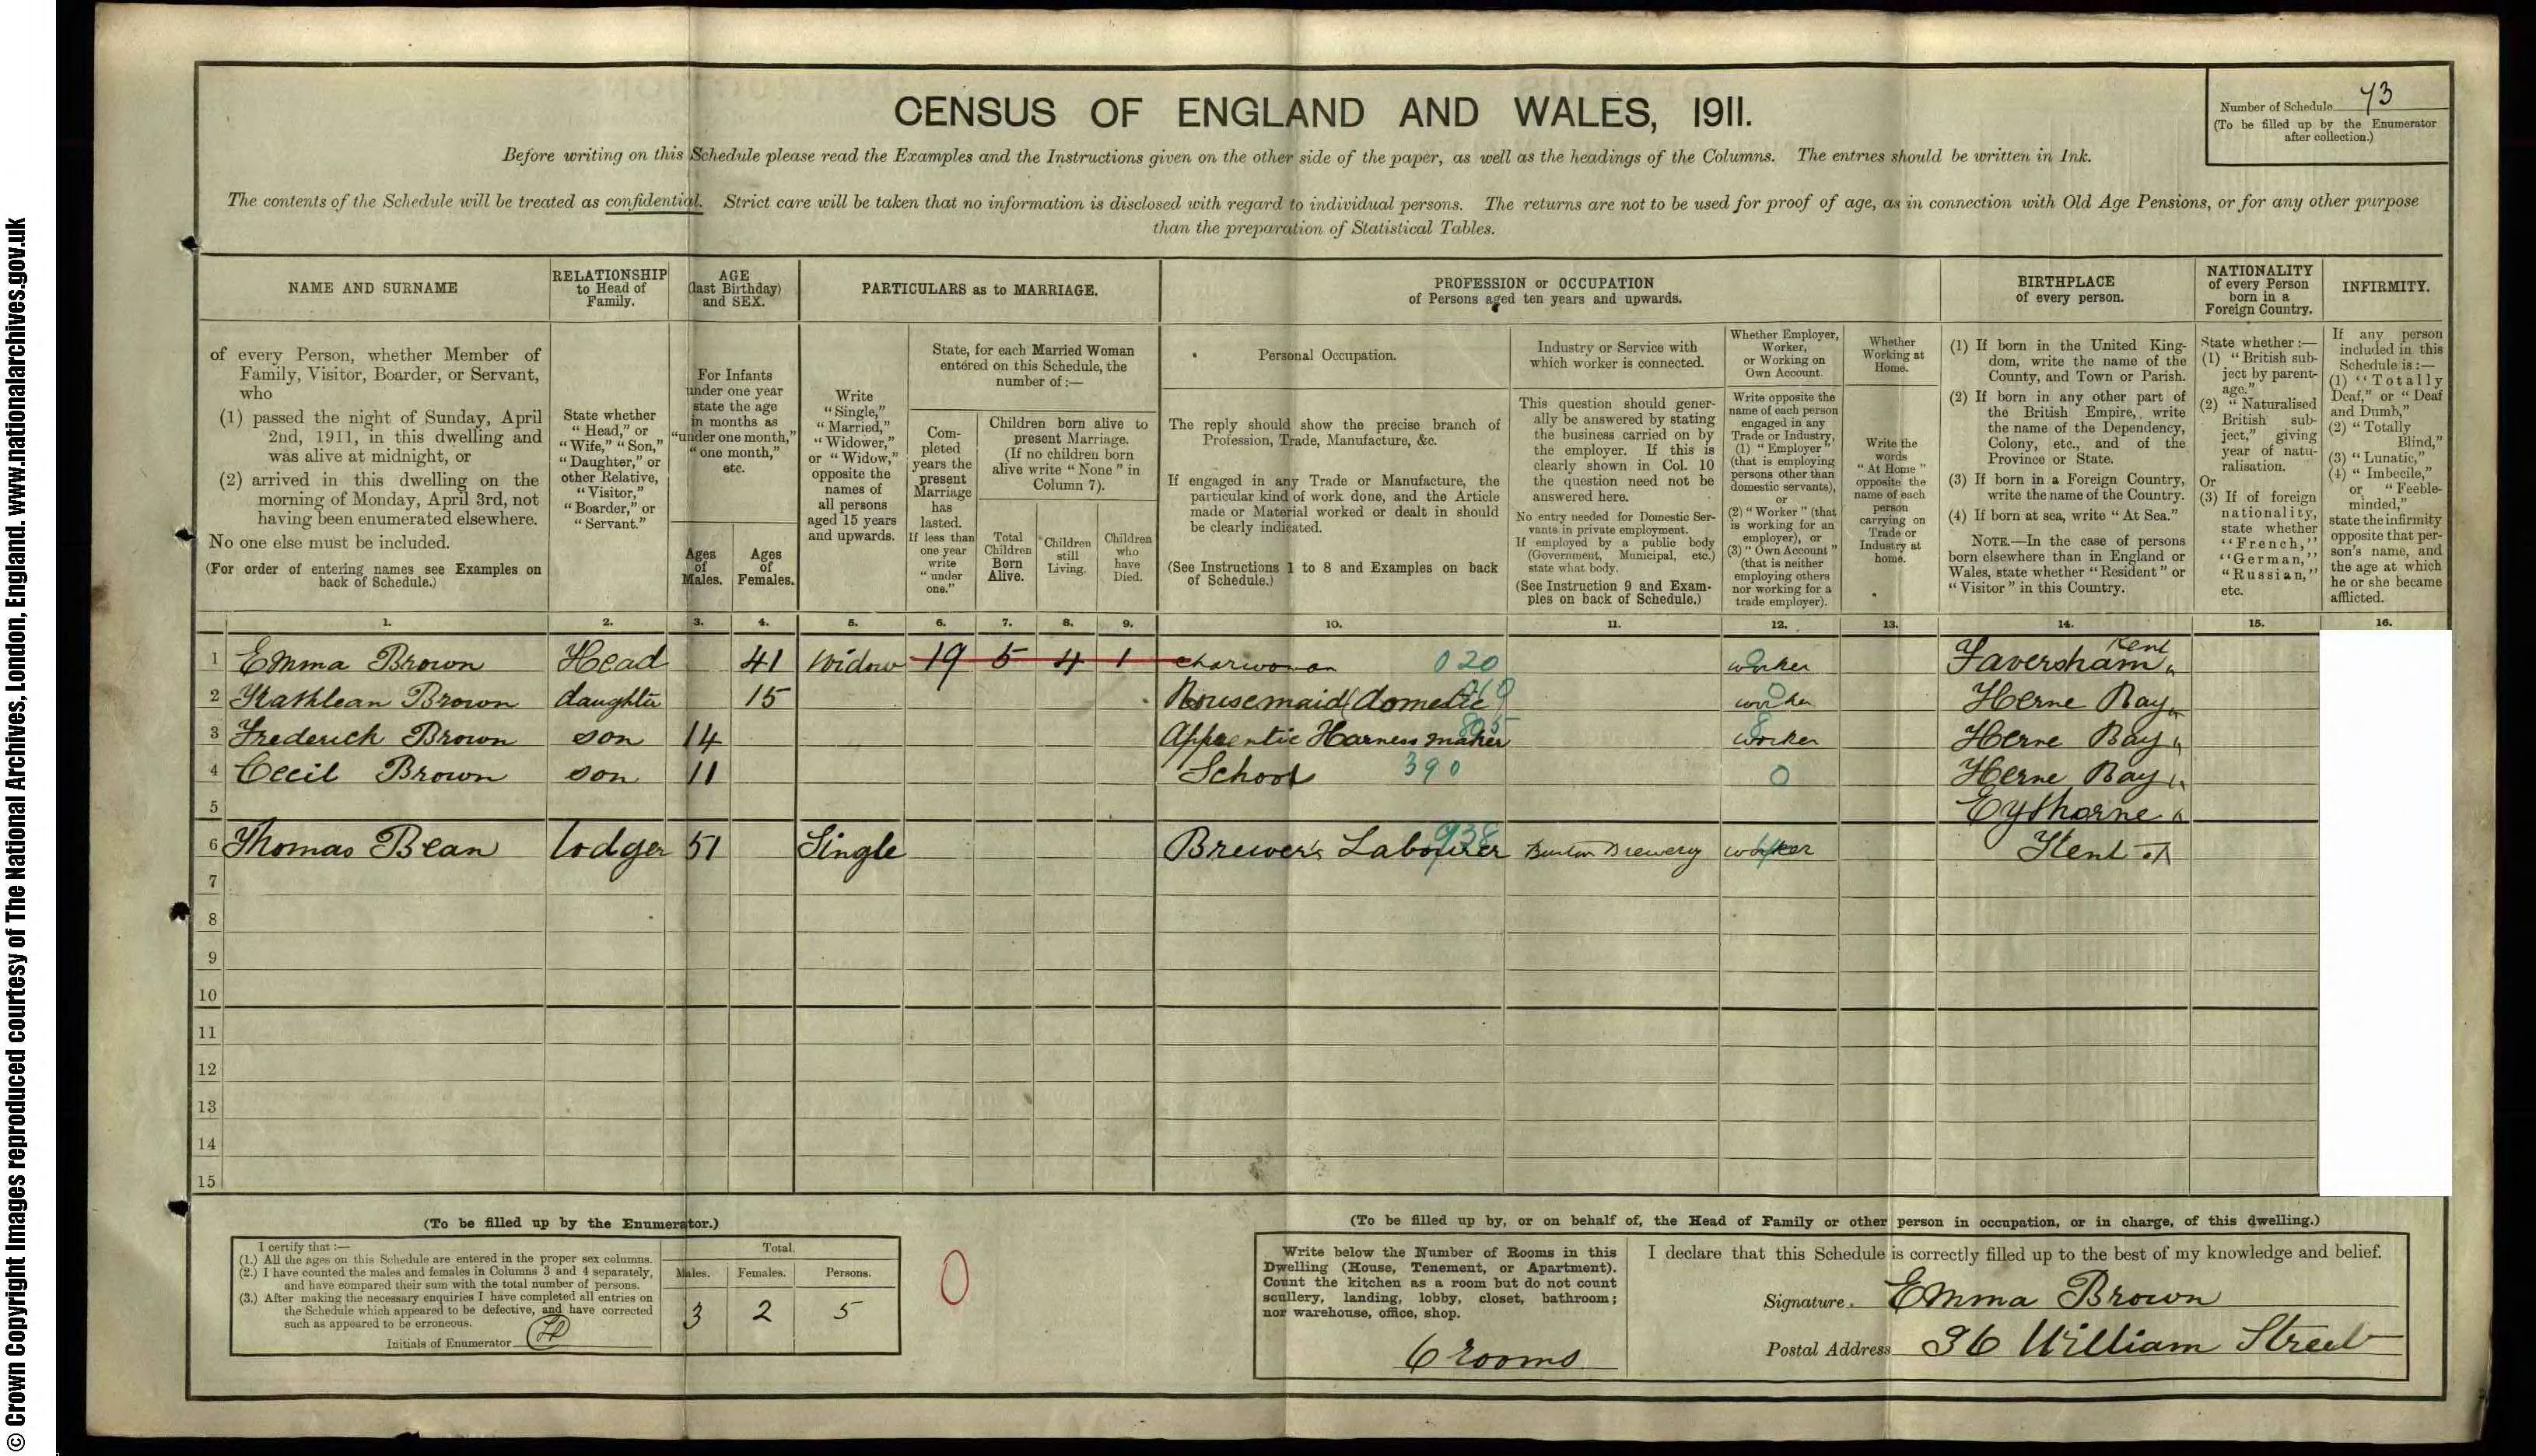 © Crown Copyright Images reproduced courtesy of The National Archives, London, England. www.nationalarchives.gov.uk
CENSUS OF ENGLAND AND WALES, 1911.
Number of Schedule 43
(To be filled up by the Enumerator
after collection.)
Before writing on this Schedule please read the Examples and the Instructions given on the other side of the paper, as well as the headings of the Columns. The entries should be written in Ink.
The contents of the Schedule will be treated as confidential. Strict care will be taken that no information is disclosed with regard to individual persons. The returns are not to be used for proof of age, as in connection with Old Age Pensions, or for any other purpose
than the preparation of Statistical Tables.
NAME AND SURNAME
of every Person, whether Member of
Family, Visitor, Boarder, or Servant,
who
(1) passed the night of Sunday, April
2nd, 1911, in this dwelling and
was alive at midnight, or
(2) arrived in this dwelling on the
morning of Monday, April 3rd, not
having been enumerated elsewhere.
No one else must be included.
(For order of entering names see Examples on
back of Schedule.)
RELATIONSHIP
to Head of
Family.
State whether
"Head," or
"Wife," "Son,"
"Daughter," or
other Relative,
"Visitor,"
"Boarder," or
"Servant."
AGE
(last Birthday)
and SEX.
For Infants
under one year
state the age
in months as
"under one month,"
"one month,"
etc.
Ages
of
Males.
Ages
of
Females.
PARTICULARS as to MARRIAGE.
Write
"Single,"
"Married,"
"Widower,"
or "Widow,"
opposite the
names of
all persons
aged 15 years
and upwards.
State, for each Married Woman
entered on this Schedule, the
number of:—
Com-
pleted
years the
present
Marriage
has
lasted.
If less than
one year
write
"under
one."
Children born alive to
present Marriage.
(If no children born
alive write "None" in
Column 7).
Total
Children
Born
Alive.
Children
still
Living.
Children
who
have
Died.
PROFESSION or OCCUPATION
of Persons aged ten years and upwards.
Personal Occupation.
The reply should show the precise branch of
Profession, Trade, Manufacture, &c.
If engaged in any Trade or Manufacture, the
particular kind of work done, and the Article
made or Material worked or dealt in should
be clearly indicated.
(See Instructions 1 to 8 and Examples on back
of Schedule.)
Industry or Service with
which worker is connected.
This question should gener-
ally be answered by stating
the business carried on by
the employer. If this is
clearly shown in Col. 10
the question need not be
answered here.
No entry needed for Domestic Ser-
vants in private employment.
If employed by a public body
(Government, Municipal, etc.)
state what body.
(See Instruction 9 and Exam-
ples on back of Schedule.)
Whether Employer,
Worker,
or Working on
Own Account.
Write opposite the
name of each person
engaged in any
Trade or Industry,
(1) "Employer"
(that is employing
persons other than
domestic servants),
or
(2) "Worker" (that
is working for an
employer), or
(3) "Own Account"
(that is neither
employing others
nor working for a
trade employer).
Whether
Working at
Home.
Write the
words
"At Home"
opposite the
name of each
person
carrying on
Trade or
Industry at
home.
BIRTHPLACE
of every person.
(1) If born in the United King-
dom, write the name of the
County, and Town or Parish.
(2) If born in any other part of
the British Empire, write
the name of the Dependency,
Colony, etc., and of the
Province or State.
(3) If born in a Foreign Country,
write the name of the Country.
(4) If born at sea, write "At Sea."
NOTE.—In the case of persons
born elsewhere than in England or
Wales, state whether "Resident" or
"Visitor" in this Country.
NATIONALITY
of every Person
born in a
Foreign Country.
State whether:—
(1) "British sub-
ject by parent-
age."
(2) "Naturalised
British sub-
ject," giving
year of natu-
ralisation.
Or
(3) If of foreign
nationality,
state whether
"French,"
"German,"
"Russian,"
etc.
INFIRMITY.
If any person
included in this
Schedule is:—
(1) "Totally
Deaf," or "Deaf
and Dumb,"
(2) "Totally
Blind,"
(3) "Lunatic,"
(4) "Imbecile,"
or "Feeble-
minded,"
state the infirmity
opposite that per-
son's name, and
the age at which
he or she became
afflicted.
1. 2. 3. 4. 5. 6. 7. 8. 9. 10. 11. 12. 13. 14. 15. 16.
1 Emma Brown Head 41 Widow 19 5 4 1 Charwoman 020 worker Faversham Kent
2 Kathlean Brown daughter 15 Housemaid (domestic worker Herne Bay
3 Frederick Brown son 14 Apprentic Harness maker 895 worker Herne Bay
4 Cecil Brown son 11 School 390 0 Herne Bay
5 Eythorne
6 Thomas Bean Lodger 51 Single Brewer's Labourer 938 Brewery worker Kent
7
8
9
10
11
12
13
14
15
(To be filled up by the Enumerator.)
I certify that:—
(1.) All the ages on this Schedule are entered in the proper sex columns.
(2.) I have counted the males and females in Columns 3 and 4 separately,
and have compared their sum with the total number of persons.
(3.) After making the necessary enquiries I have completed all entries on
the Schedule which appeared to be defective, and have corrected
such as appeared to be erroneous.
Initials of Enumerator
Total.
Males. Females. Persons.
3 2 5
0
(To be filled up by, or on behalf of, the Head of Family or other person in occupation, or in charge, of this dwelling.)
Write below the Number of Rooms in this
Dwelling (House, Tenement, or Apartment).
Count the kitchen as a room but do not count
scullery, landing, lobby, closet, bathroom;
nor warehouse, office, shop.
6 rooms
I declare that this Schedule is correctly filled up to the best of my knowledge and belief.
Signature Emma Brown
Postal Address 36 William Street